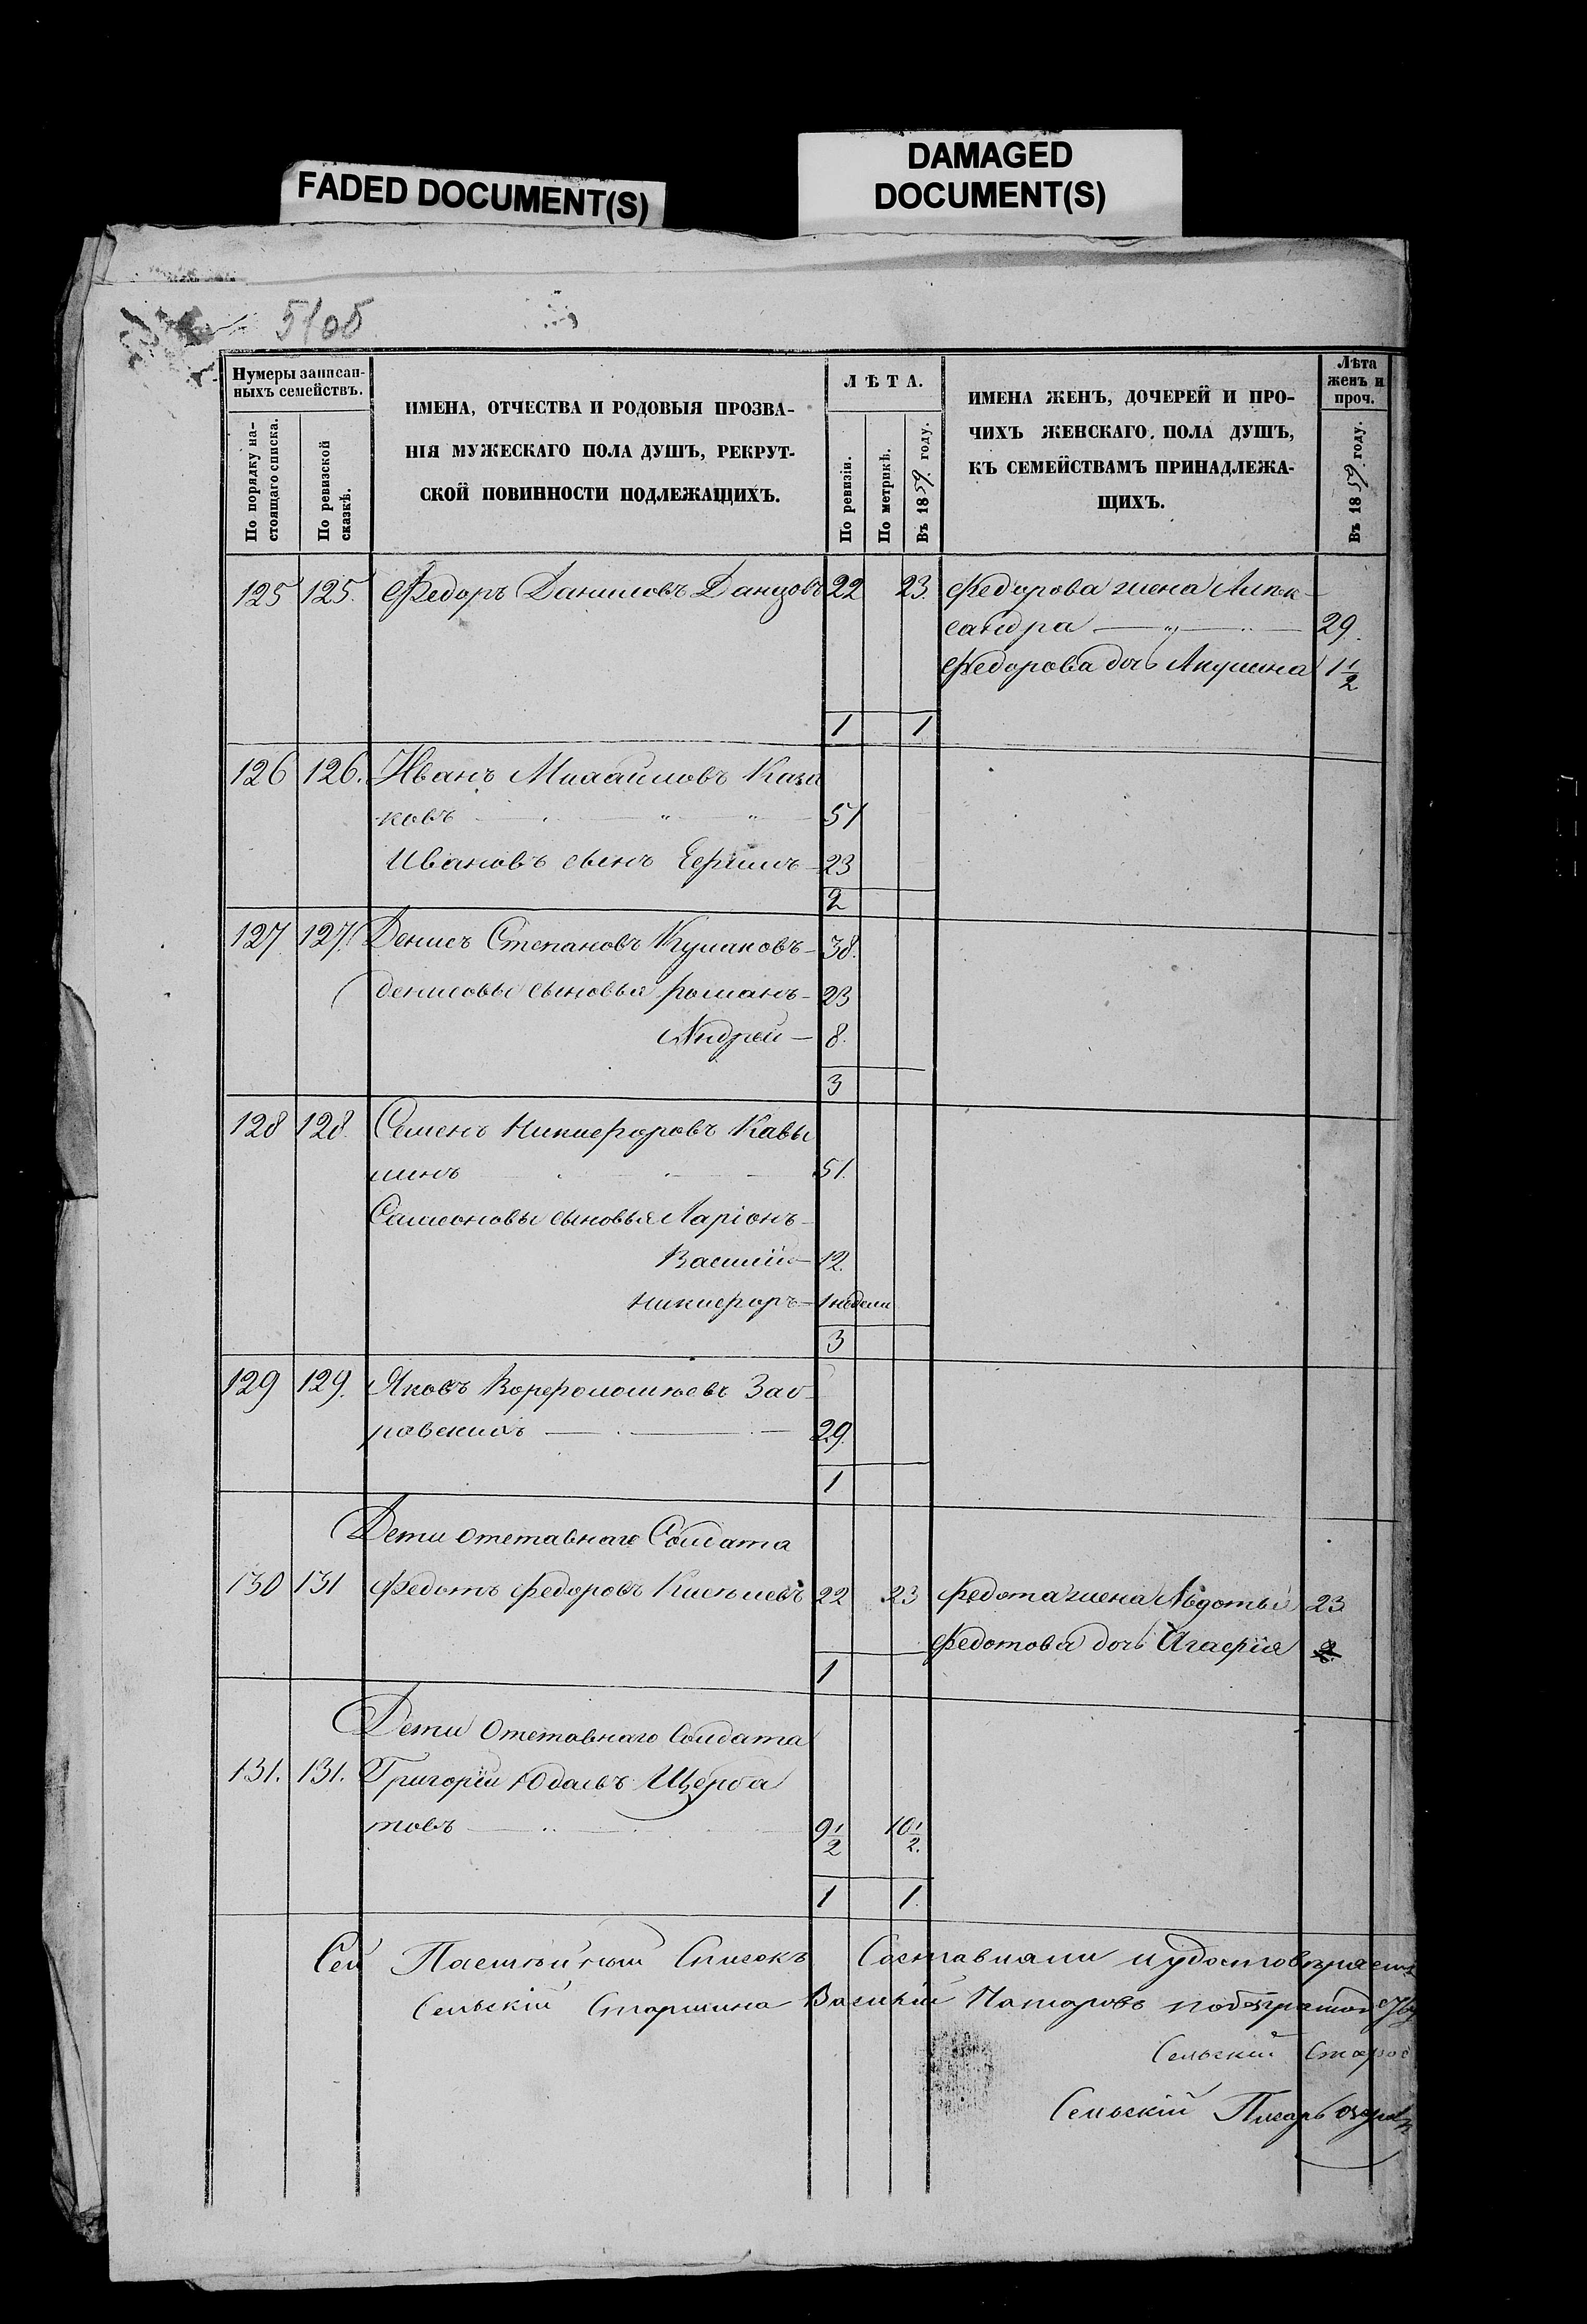 FADED DOCUMENT(S)
DAMAGED
DOCUMENT(S)
Нумеры записан-
ныхъ семействъ.
По порядку на-
стоящаго списка.
По ревизской
сказкѣ.
ИМЕНА, ОТЧЕСТВА И РОДОВЫЯ ПРОЗВА-
НІЯ МУЖЕСКАГО ПОЛА ДУШЪ, РЕКРУТ-
СКОЙ ПОВИННОСТИ ПОДЛЕЖАЩИХЪ.
ЛѢТА.
По ревизіи.
По метрикѣ.
Въ 1859 году.
ИМЕНА ЖЕНЪ, ДОЧЕРЕЙ И ПРО-
ЧИХЪ ЖЕНСКАГО ПОЛА ДУШЪ,
КЪ СЕМЕЙСТВАМЪ ПРИНАДЛЕЖА-
ЩИХЪ.
Лѣта
женъ и
проч.
Въ 1859 году.
125 125. Федоръ Даниловъ Данцовъ 22 23. Федорова жена Алек-
сандра 29.
Федорова дочь Акулина 1 1/2
1 1
126 126. Иванъ Михайловъ Кази
ковъ 51
Ивановъ сынъ 23
2
127 127. Денисъ Степановъ Куликовъ 38.
денисовы сыновья романъ 23
Андрей 8.
3
128 128. Семенъ Никифоровъ Кавы
шинъ 51.
сыновья Ларіонъ
Василій 12.
Никифоръ 1 недели
3
129 129. Яковъ
29.
1
Дети отставнаго Солдата
130 131 Федотъ федоровъ 22 23 федота жена Авдотья 23
Федотова дочь
1
Дети Отставнаго Солдата
131. 131. Григорій Щерба
товъ 9 1/2 10 1/2.
1 1
Сей Списокъ Составляли и
Сельскій Старшина Василій
Сельскій
Сельскій Писарь